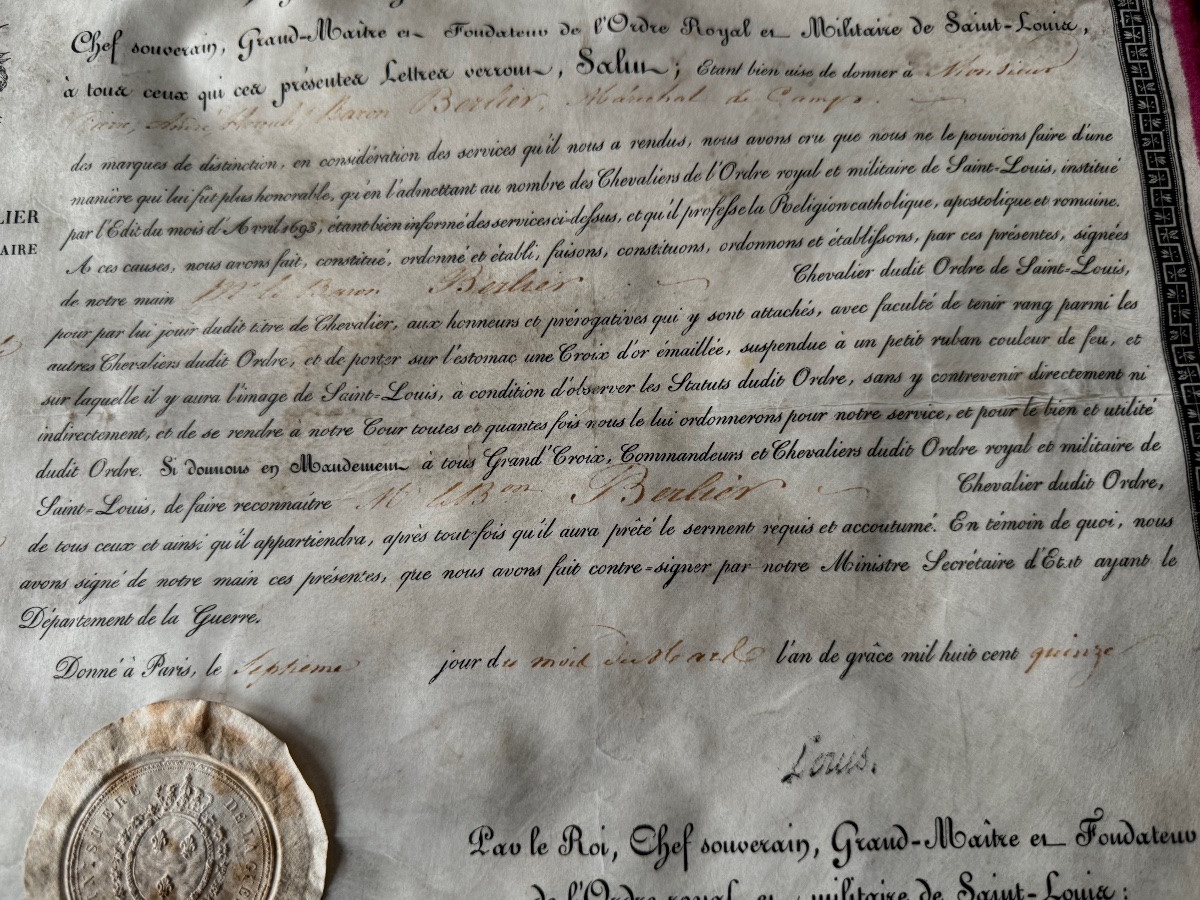 Chef souverain, Grand-Maître et Fondateur de l'Ordre Royal et Militaire de Saint-Louis,
à tous ceux qui ces présentes Lettres verront, Salut; Etant bien aise de donner à Monsieur
Baron Berlier, Maréchal de Camp.
des marques de distinction, en considération des services qu'il nous a rendus, nous avons cru que nous ne le pouvions faire d'une
manière qui lui fût plus honorable, qu'en l'admettant au nombre des Chevaliers de l'Ordre royal et militaire de Saint-Louis, institué
par l'Edit du mois d'Avril 1693; étant bien informé des services ci-dessus, et qu'il professe la Religion catholique, apostolique et romaine.
A ces causes, nous avons fait, constitué, ordonné et établi, faisons, constituons, ordonnons et établissons, par ces présentes, signées
de notre main Mr le Baron Berlier Chevalier dudit Ordre de Saint-Louis,
pour par lui jouir dudit titre de Chevalier, aux honneurs et prérogatives qui y sont attachés, avec faculté de tenir rang parmi les
autres Chevaliers dudit Ordre, et de porter sur l'estomac une Croix d'or émaillée, suspendue à un petit ruban couleur de feu, et
sur laquelle il y aura l'image de Saint-Louis, à condition d'observer les Statuts dudit Ordre, sans y contrevenir directement ni
indirectement, et de se rendre à notre Cour toutes et quantes fois nous le lui ordonnerons pour notre service, et pour le bien et utilité
dudit Ordre. Si donnons en Mandement à tous Grand'Croix, Commandeurs et Chevaliers dudit Ordre royal et militaire de
Saint-Louis, de faire reconnaitre Mr le Bon Berlier Chevalier dudit Ordre,
de tous ceux et ainsi qu'il appartiendra, après tout-fois qu'il aura prêté le serment requis et accoutumé. En témoin de quoi, nous
avons signé de notre main ces présentes, que nous avons fait contre-signer par notre Ministre Secrétaire d'Etat ayant le
Département de la Guerre.
Donné à Paris, le Septieme jour du mois de Mars l'an de grâce mil huit cent quinze
Louis.
Par le Roi, Chef souverain, Grand-Maître et Fondateur
de l'Ordre royal et militaire de Saint-Louis:
LIER
AIRE